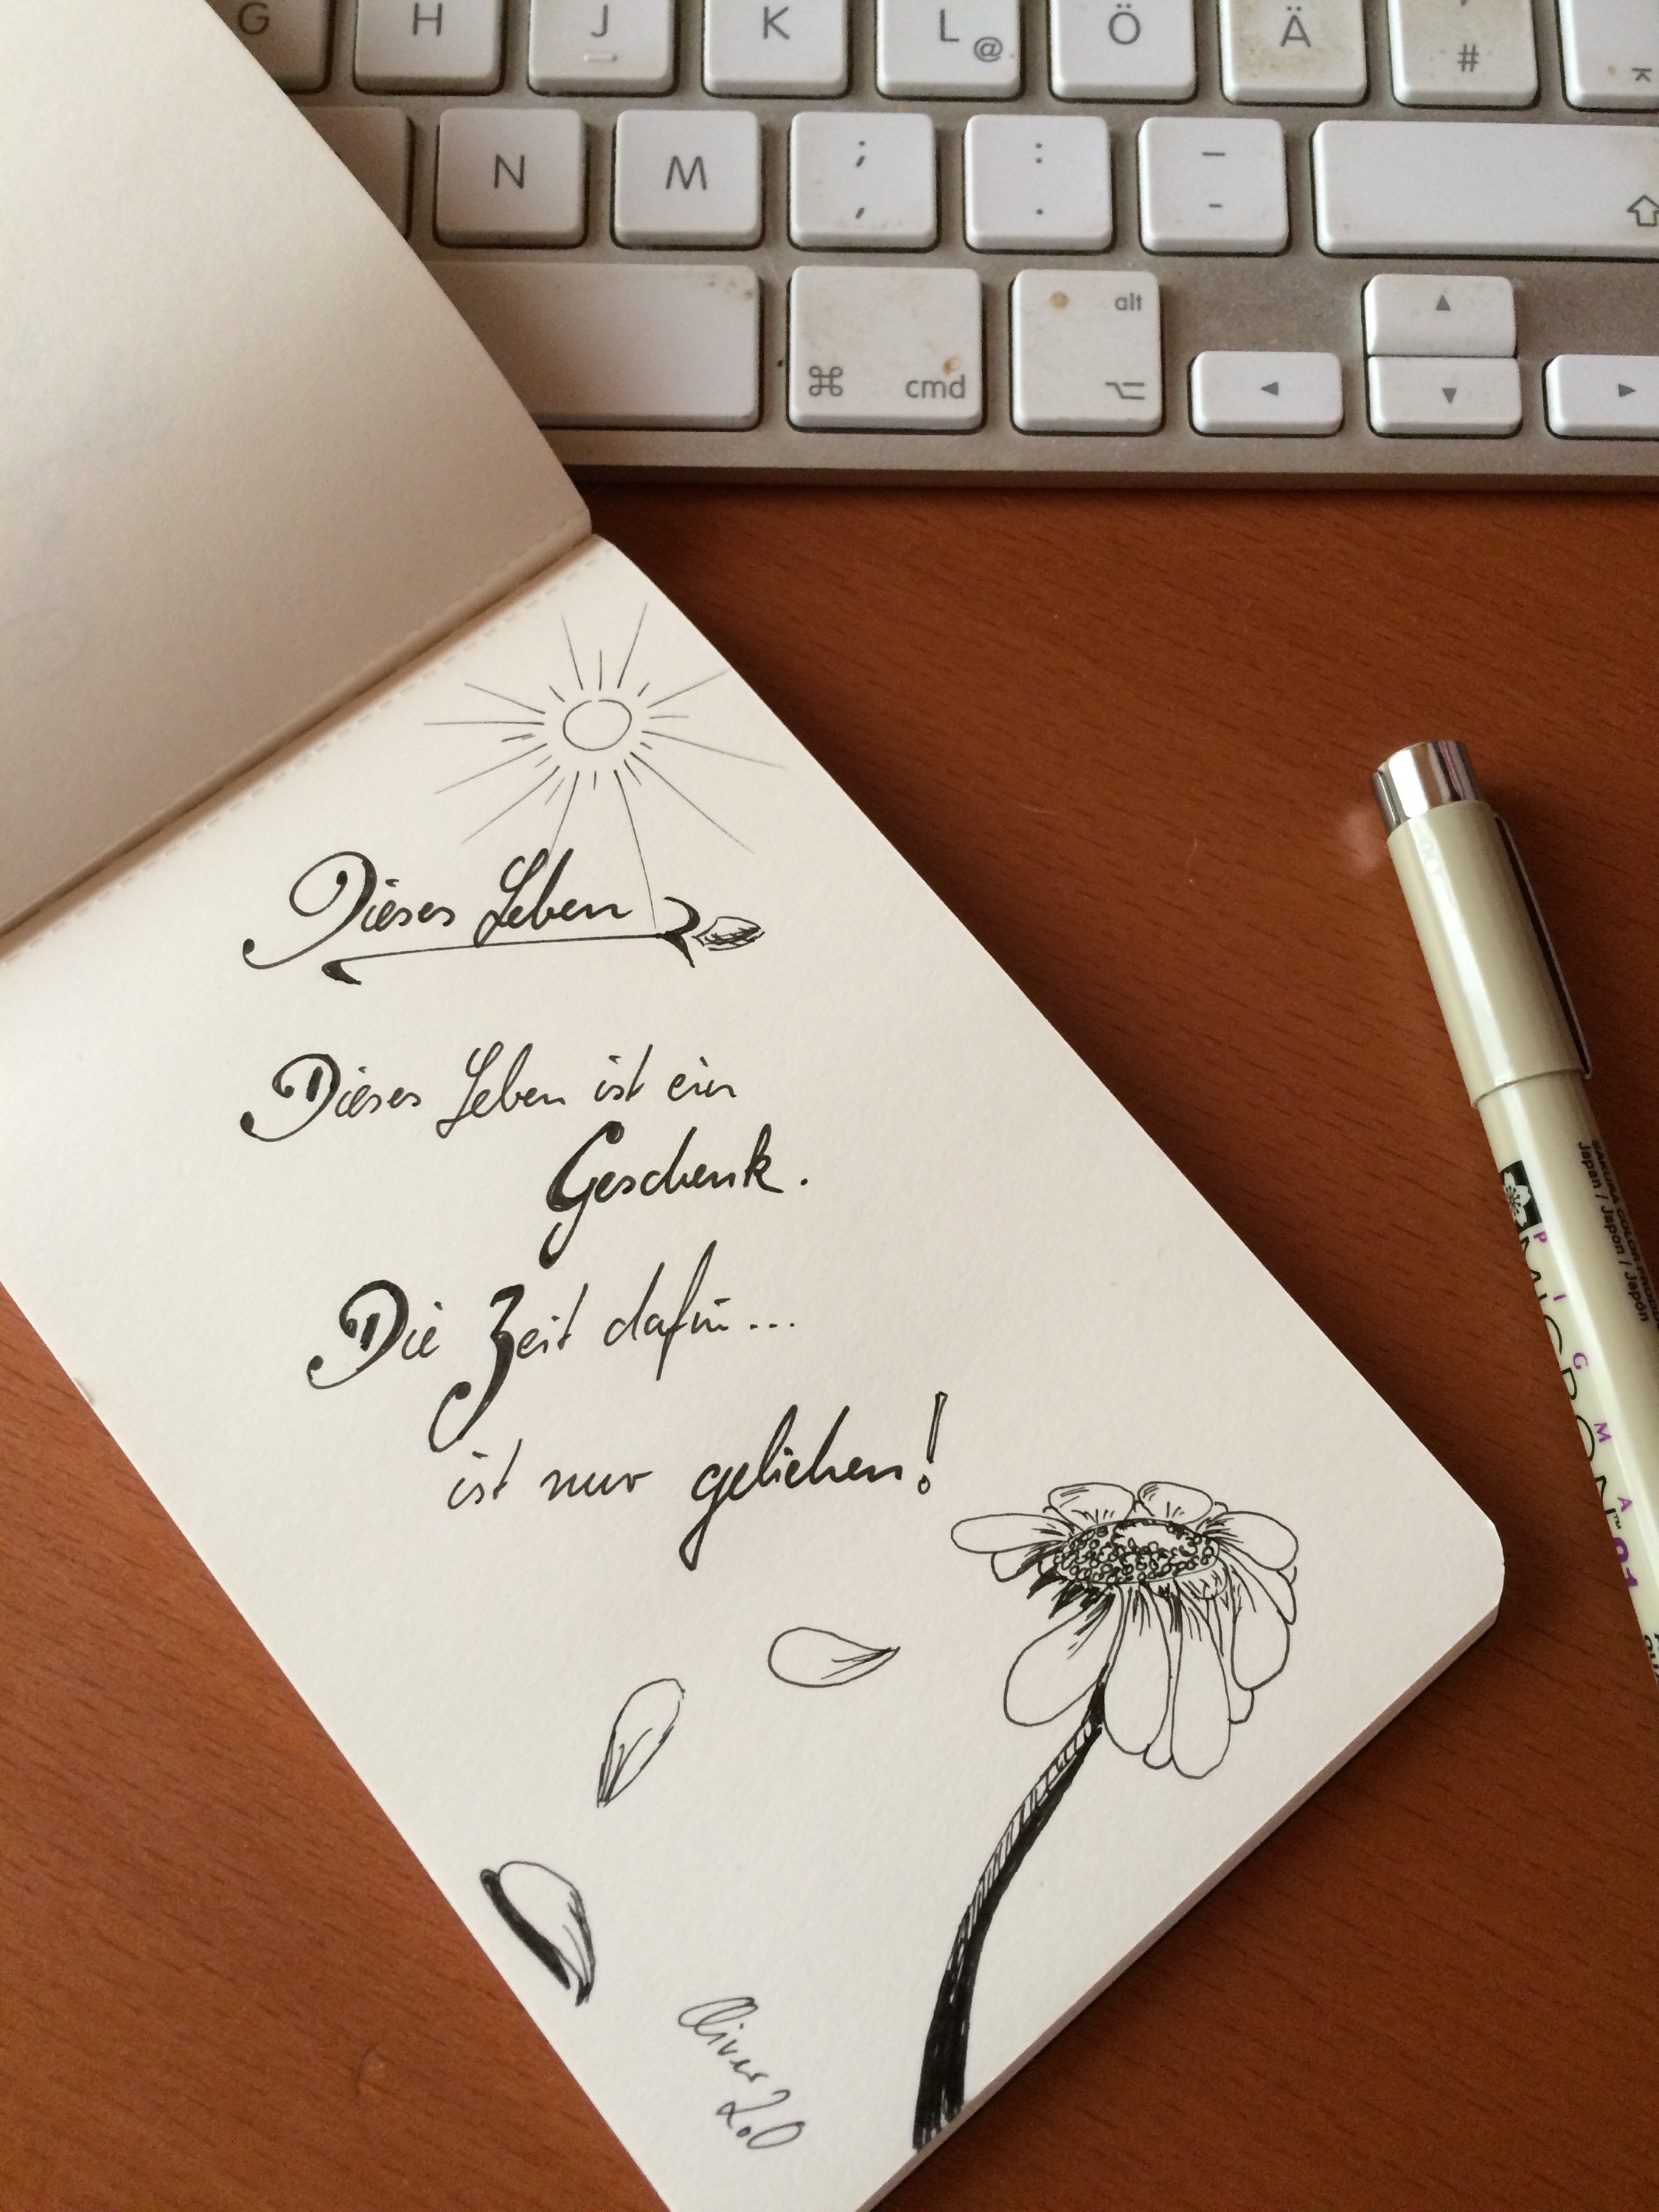 G H J K L @ Ö Ä ' #
N M ; , : . _ -
⌘ cmd alt ⌥
Dieses Leben
Dieses Leben ist ein
Geschenk.
Die Zeit dafür...
ist nur geliehen!
Oliver 2.0
SAKURA COLOR PRODUCTS
Japan / Japon / Japón
PIGMA
MICRON™ 01